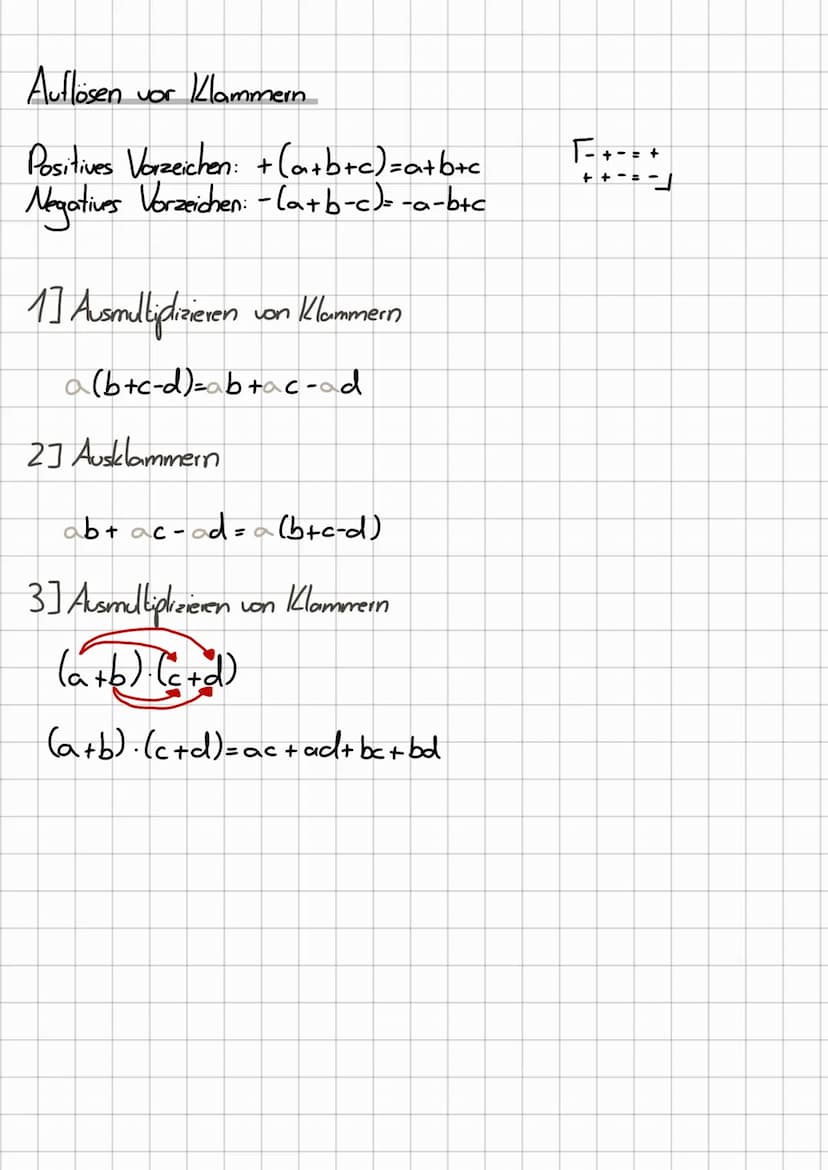 Auflösen vor Klammern
Positives Vorzeichen: +(a+b+c)=a+b+c
Negatives Vorzeichen: -(a+b-c)= -a-b+c
- + - = +
+ + - = -
1] Ausmultiplizieren von Klammern
a(b+c-d)=ab+ac-ad
2] Ausklammern
ab + ac - ad = a(b+c-d)
3] Ausmultiplizieren von Klammern
(a+b)·(c+d)
(a+b)·(c+d)=ac+ad+bc+bd